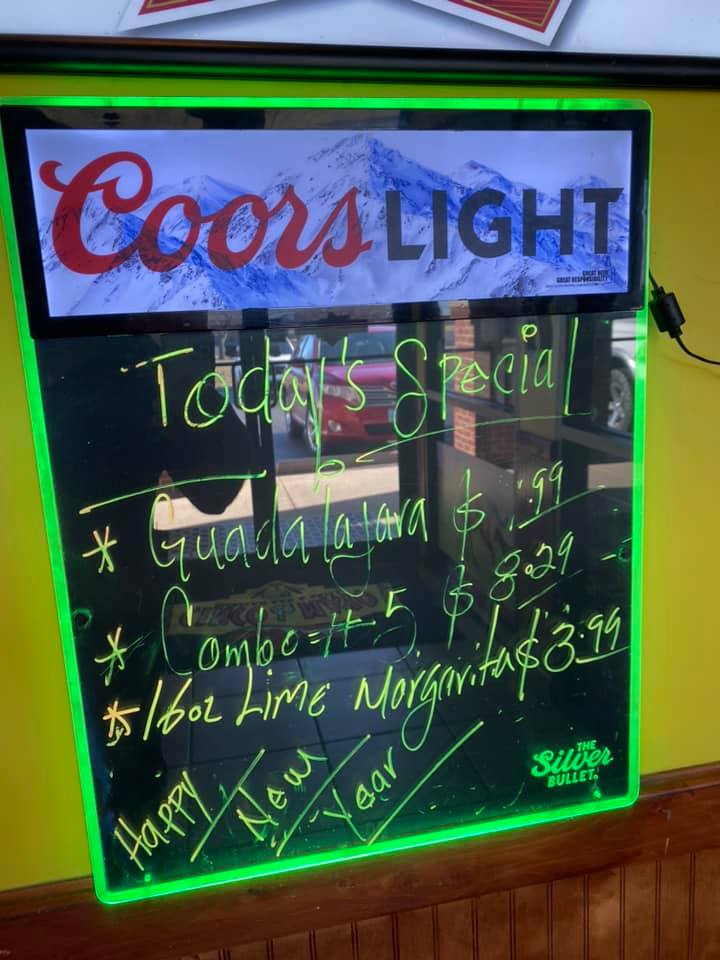 Coors LIGHT
GREAT BEER
GREAT RESPONSIBILITY
Today's Special
* Guadalajara $ .99
* Combo # 5 $ 8.29
* 16oz Lime Morgarita $3.99
Happy / New / Year /
THE
Silver
BULLET.